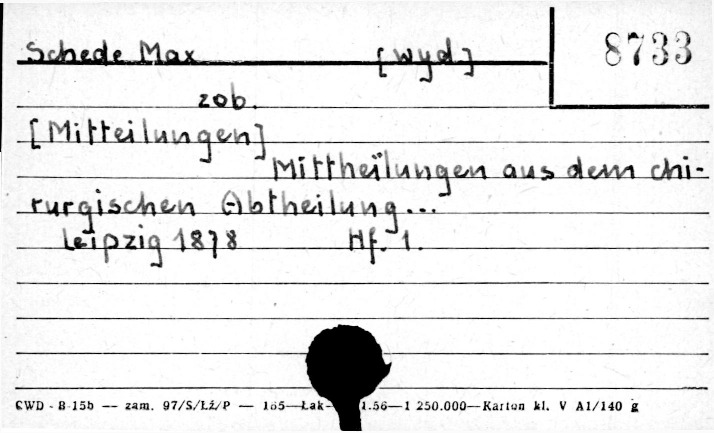 Schede Max [wyd] 8733
zob.
[Mitteilungen]
Mittheilungen aus dem chi-
rurgischen Abtheilung...
Leipzig 1878 Hf. 1.
CWD - B-15b — zam. 97/S/Łż/P — 165—Łak- 1.56—1 250.000—Karton kl. V A1/140 g